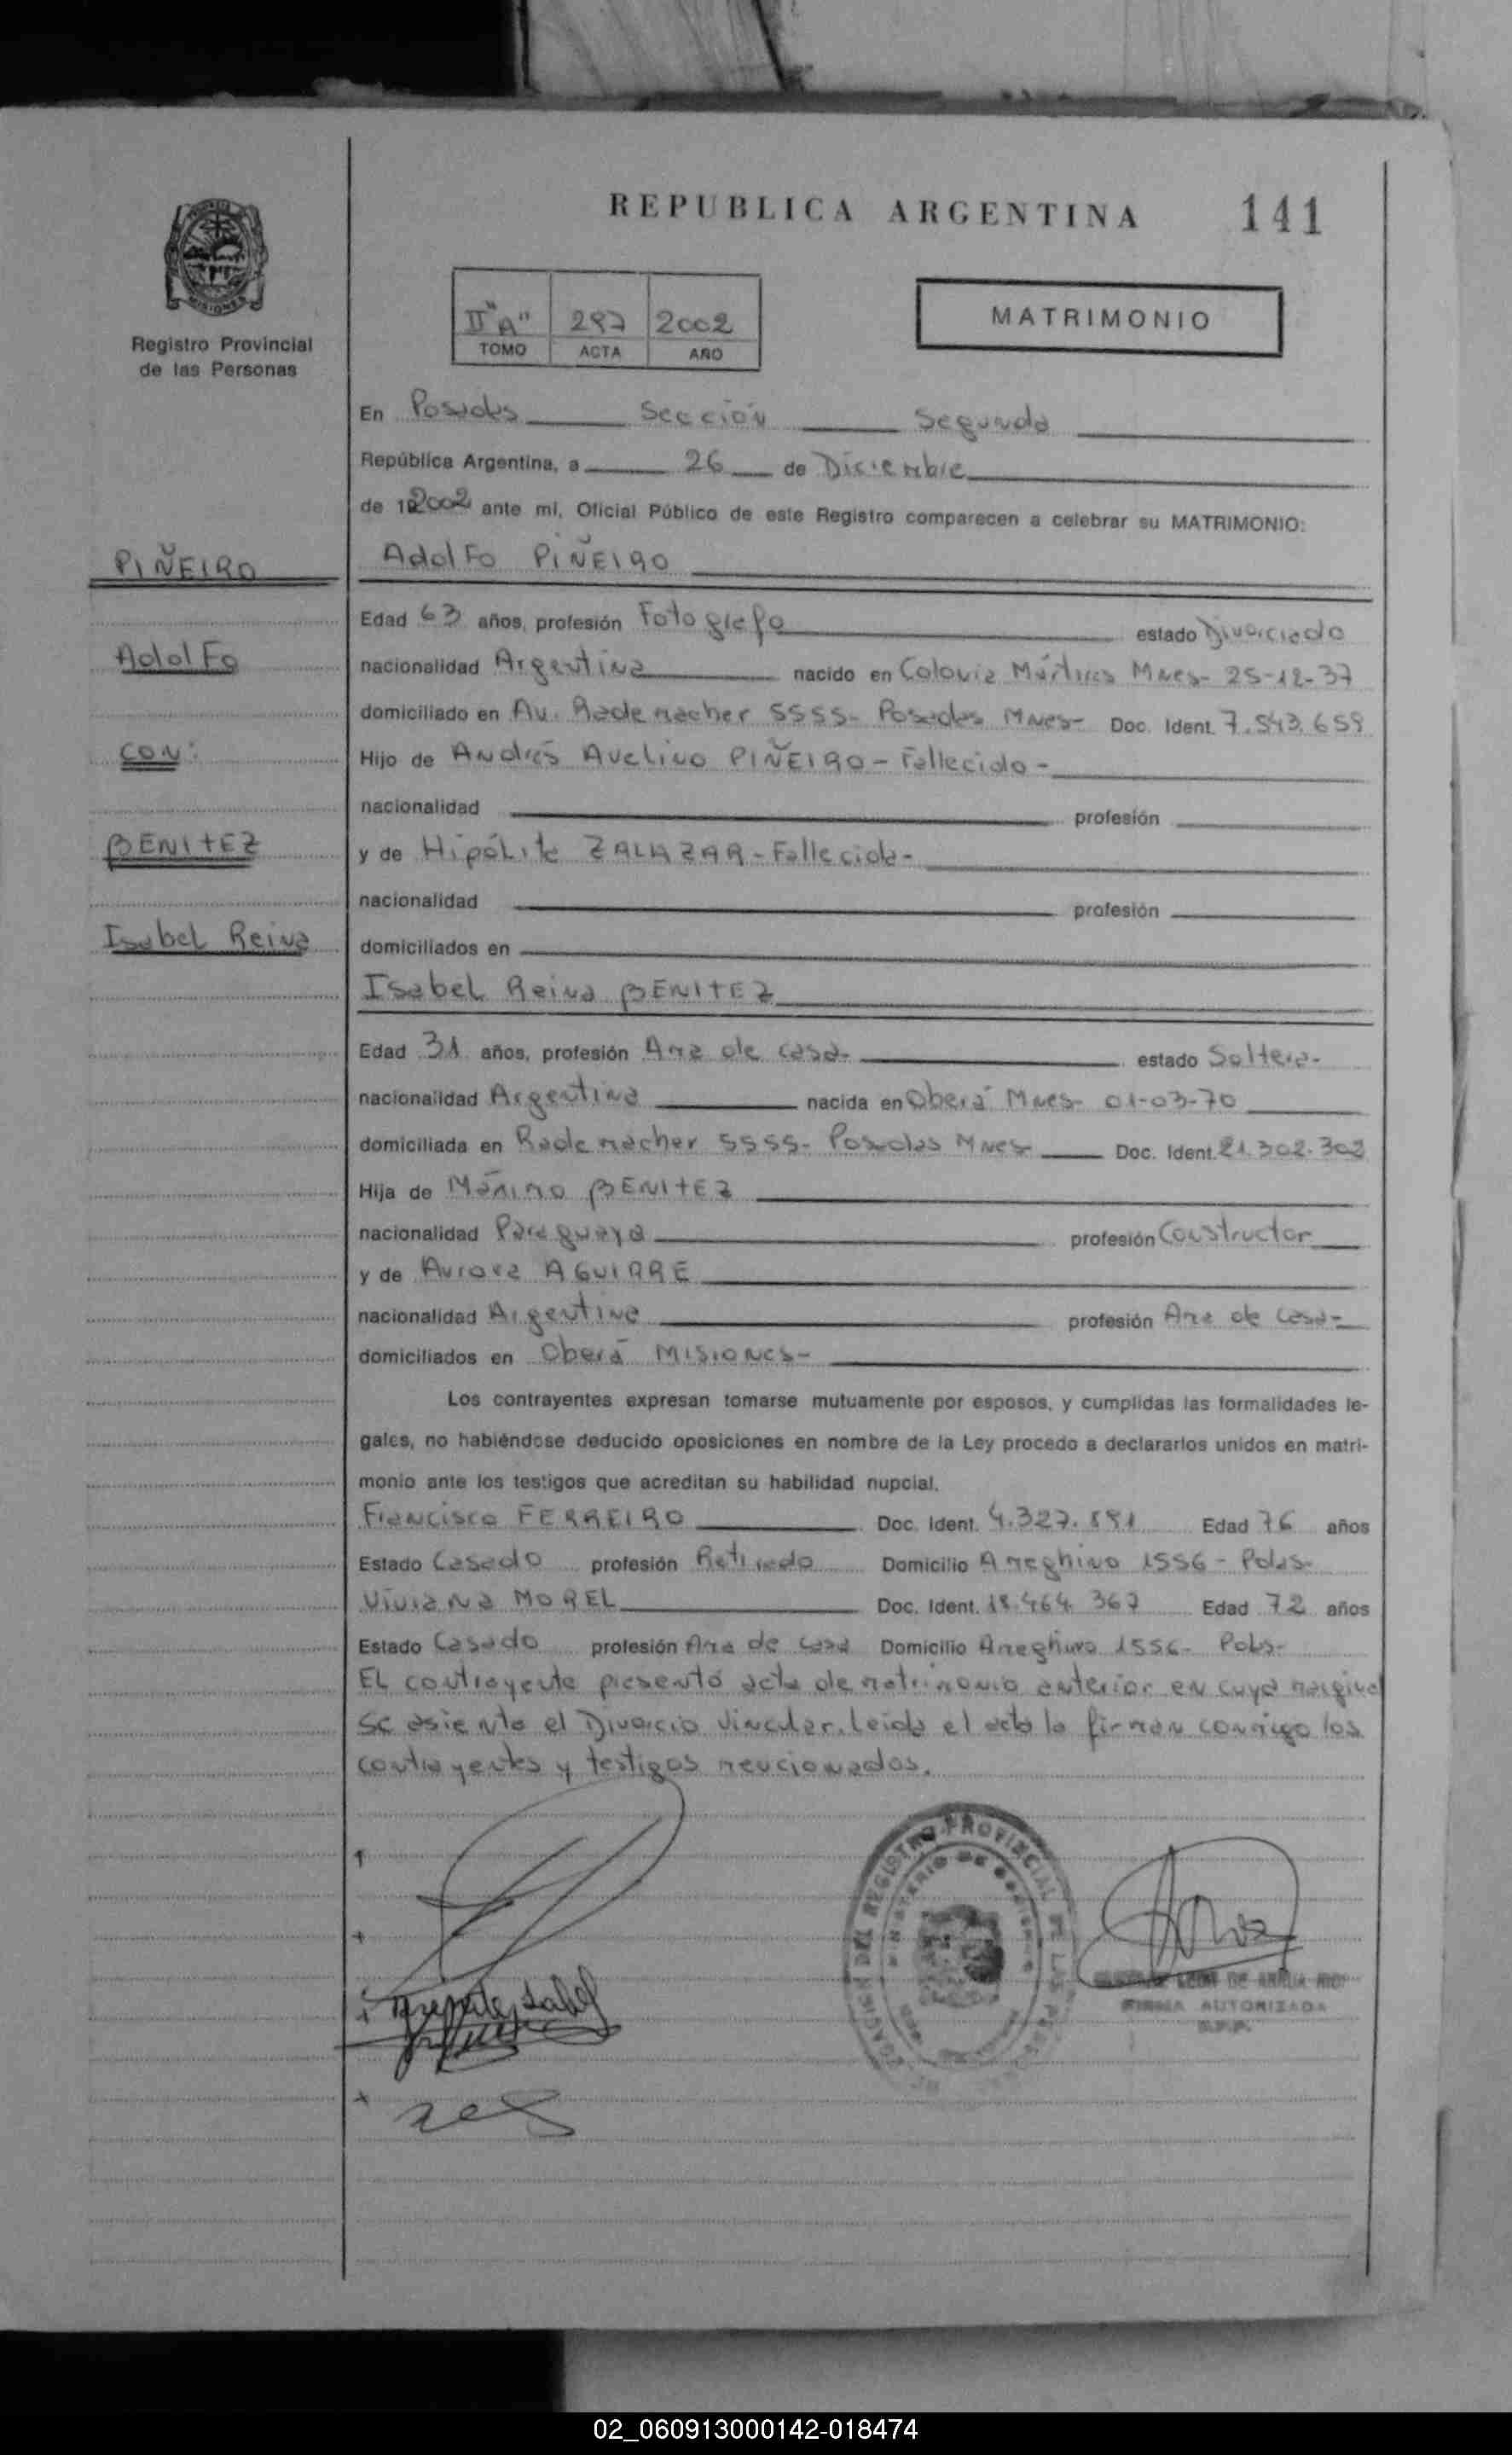 REPUBLICA ARGENTINA 141
MISIONES
Registro Provincial
de las Personas
II "A" 297 2002
TOMO ACTA AÑO
MATRIMONIO
En Posadas Sección Segunda
República Argentina, a 26 de Diciembre
de 2002 ante mi, Oficial Público de este Registro comparecen a celebrar su MATRIMONIO:
PIÑEIRO
Adolfo PIÑEIRO
Edad 63 años, profesión Fotografo estado Divorciado
Adolfo
nacionalidad Argentina nacido en Colonia Mártires Mnes- 25-12-37
domiciliado en Av. Rademacher 5555- Posadas Mnes- Doc. Ident. 7.543.659
CON:
Hijo de Andrés Avelino PIÑEIRO - Fallecido -
nacionalidad profesión
BENITEZ
y de Hipólita ZALAZAR - Fallecida -
nacionalidad profesión
Isabel Reina
domiciliados en
Isabel Reina BENITEZ
Edad 31 años, profesión Ama de casa- estado Soltera-
nacionalidad Argentina nacida en Oberá Mnes- 01-03-70
domiciliada en Rademacher 5555- Posadas Mnes- Doc. Ident. 21.302.302
Hija de Máximo BENITEZ
nacionalidad Paraguaya profesión Constructor
y de Aurora AGUIRRE
nacionalidad Argentina profesión Ama de casa-
domiciliados en Oberá MISIONES-
Los contrayentes expresan tomarse mutuamente por esposos, y cumplidas las formalidades le-
gales, no habiéndose deducido oposiciones en nombre de la Ley procedo a declararlos unidos en matri-
monio ante los testigos que acreditan su habilidad nupcial.
Francisco FERREIRO Doc. Ident. 4.327.891 Edad 76 años
Estado Casado profesión Retirado Domicilio Ameghino 1556 - Pdas-
Viviana MOREL Doc. Ident. 18.464.367 Edad 72 años
Estado Casado profesión Ama de casa Domicilio Ameghino 1556- Pdas-
EL contrayente presentó acta de matrimonio anterior en cuyo margina
se asienta el Divorcio Vincular. Leida el acta la firman conmigo los
contrayentes y testigos mencionados.
REGISTRO PROVINCIAL DE LAS
MINISTERIO DE GOBIERNO
LEON DE ARRUA
FIRMA AUTORIZADA
02_060913000142-018474